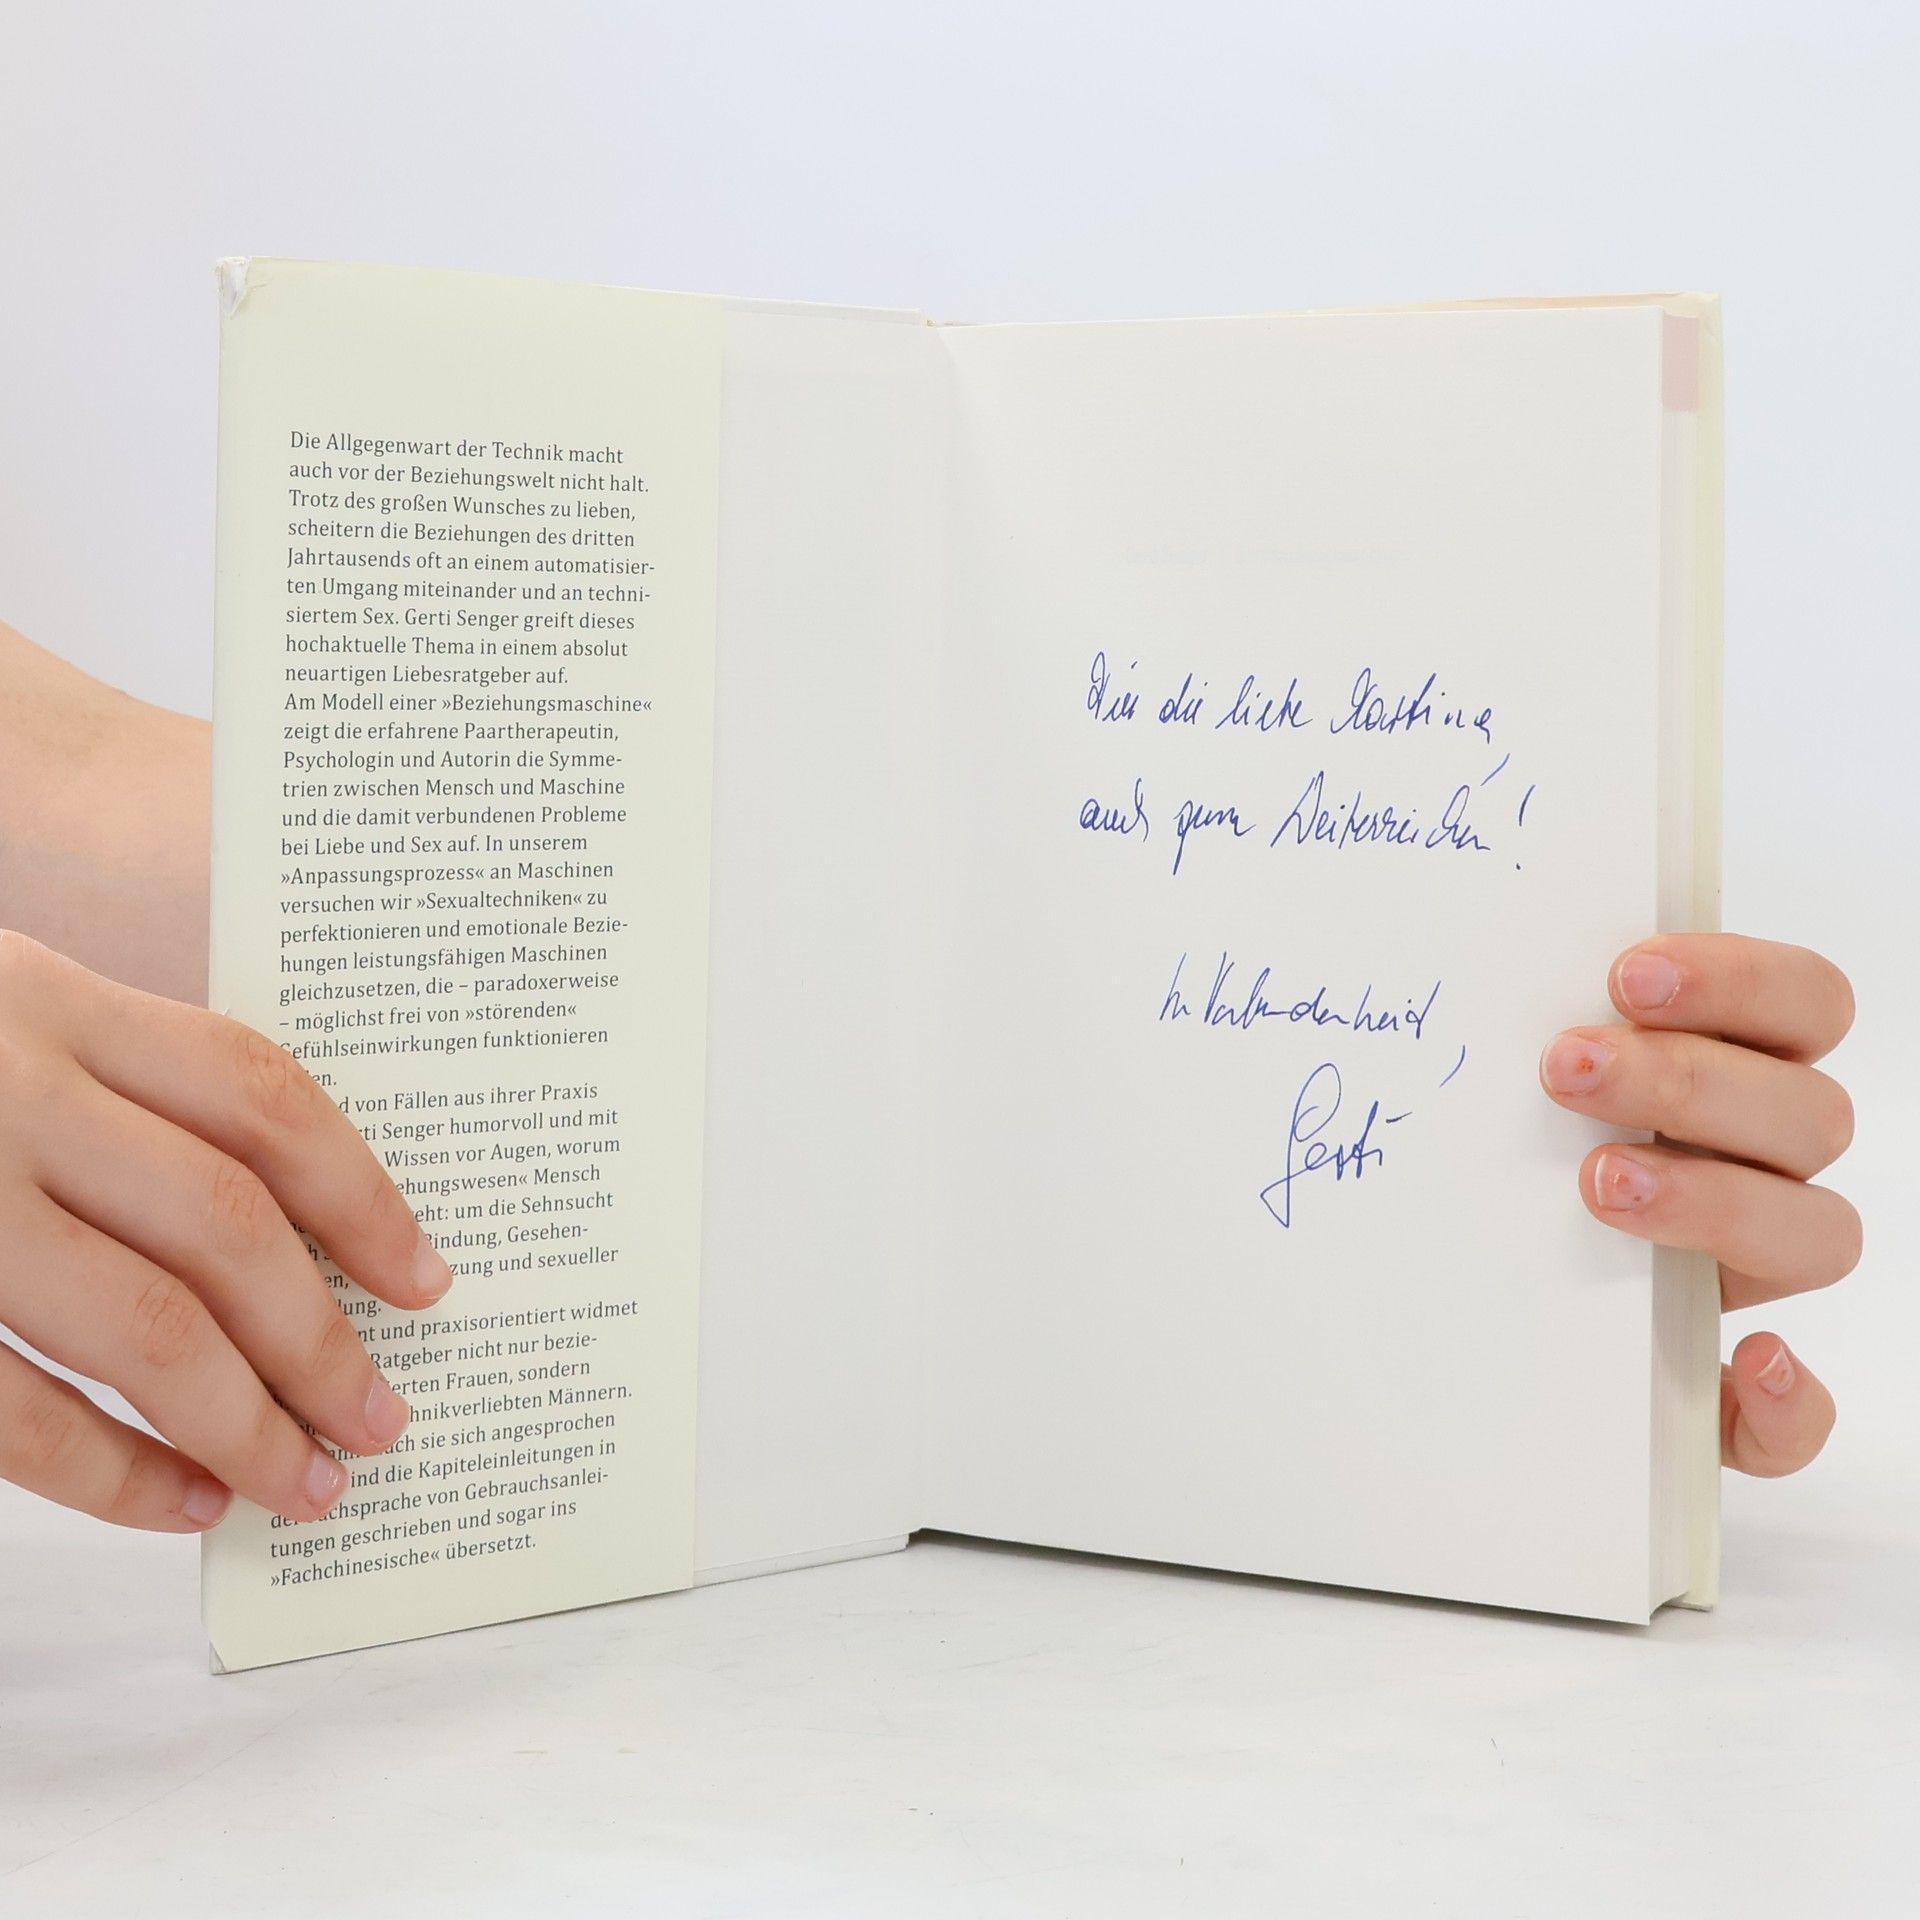 Die Allgegenwart der Technik macht
auch vor der Beziehungswelt nicht halt.
Trotz des großen Wunsches zu lieben,
scheitern die Beziehungen des dritten
Jahrtausends oft an einem automatisier-
ten Umgang miteinander und an techni-
siertem Sex. Gerti Senger greift dieses
hochaktuelle Thema in einem absolut
neuartigen Liebesratgeber auf.
Am Modell einer »Beziehungsmaschine«
zeigt die erfahrene Paartherapeutin,
Psychologin und Autorin die Symme-
trien zwischen Mensch und Maschine
und die damit verbundenen Probleme
bei Liebe und Sex auf. In unserem
»Anpassungsprozess« an Maschinen
versuchen wir »Sexualtechniken« zu
perfektionieren und emotionale Bezie-
hungen leistungsfähigen Maschinen
gleichzusetzen, die – paradoxerweise
– möglichst frei von »störenden«
Gefühlseinwirkungen funktionieren
en.
d von Fällen aus ihrer Praxis
rti Senger humorvoll und mit
Wissen vor Augen, worum
ehungswesen« Mensch
eht: um die Sehnsucht
Bindung, Gesehen-
en, zung und sexueller
lung.
nt und praxisorientiert widmet
Ratgeber nicht nur bezie-
ierten Frauen, sondern
hnikverliebten Männern.
uch sie sich angesprochen
ind die Kapiteleinleitungen in
der achsprache von Gebrauchsanlei-
tungen geschrieben und sogar ins
»Fachchinesische« übersetzt.
Für die liebe Martina,
auch zum Weiterreichen!
In Verbundenheit,
Gerti